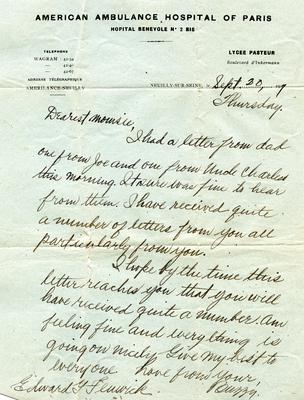 AMERICAN AMBULANCE HOSPITAL OF PARIS
HOPITAL BENEVOLE N° 2 BIS
TELEPHONE
WAGRAM :
ADRESSE TÉLÉGRAPHIQUE
AMERILANCE-NEUILLY
LYCÉE PASTEUR
Boulevard d'Inkermann
NEUILLY-SUR-SEINE, le Sept. 20,
Thursday.
Dearest
I had a letter from dad
one from Joe and one from Uncle Charles
this morning. It sure was fine to hear
from them. I have received quite
a number of letters from you all
particularly from you.
I hope by the time this
letter reaches you that you will
have received quite a number. Am
feeling fine and everything is
going on nicely. Give my best to
everyone Love from your,
Edward T. Fenwick Buzzy.